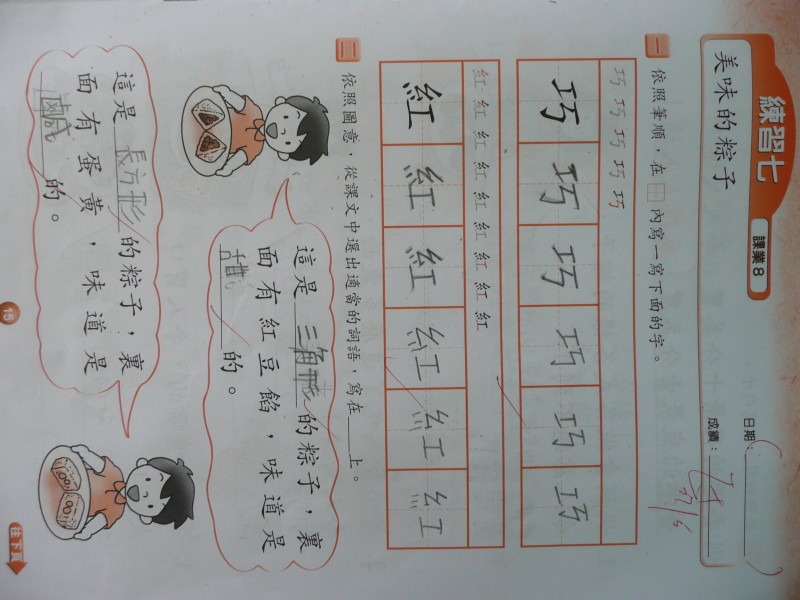 練習七
課業8
美味的粽子
日期：
成績：
一 依照筆順，在 內寫一寫下面的字。
巧 巧 巧 巧 巧
巧 巧 巧 巧 巧 巧
紅 紅 紅 紅 紅 紅 紅 紅 紅
紅 紅 紅 紅 紅 紅
二 依照圖意，從課文中選出適當的詞語，寫在＿上。
這是三角形的粽子，裏
面有紅豆餡，味道是
甜的。
這是長方形的粽子，裏
面有蛋黃，味道是
鹹的。
15
往下頁